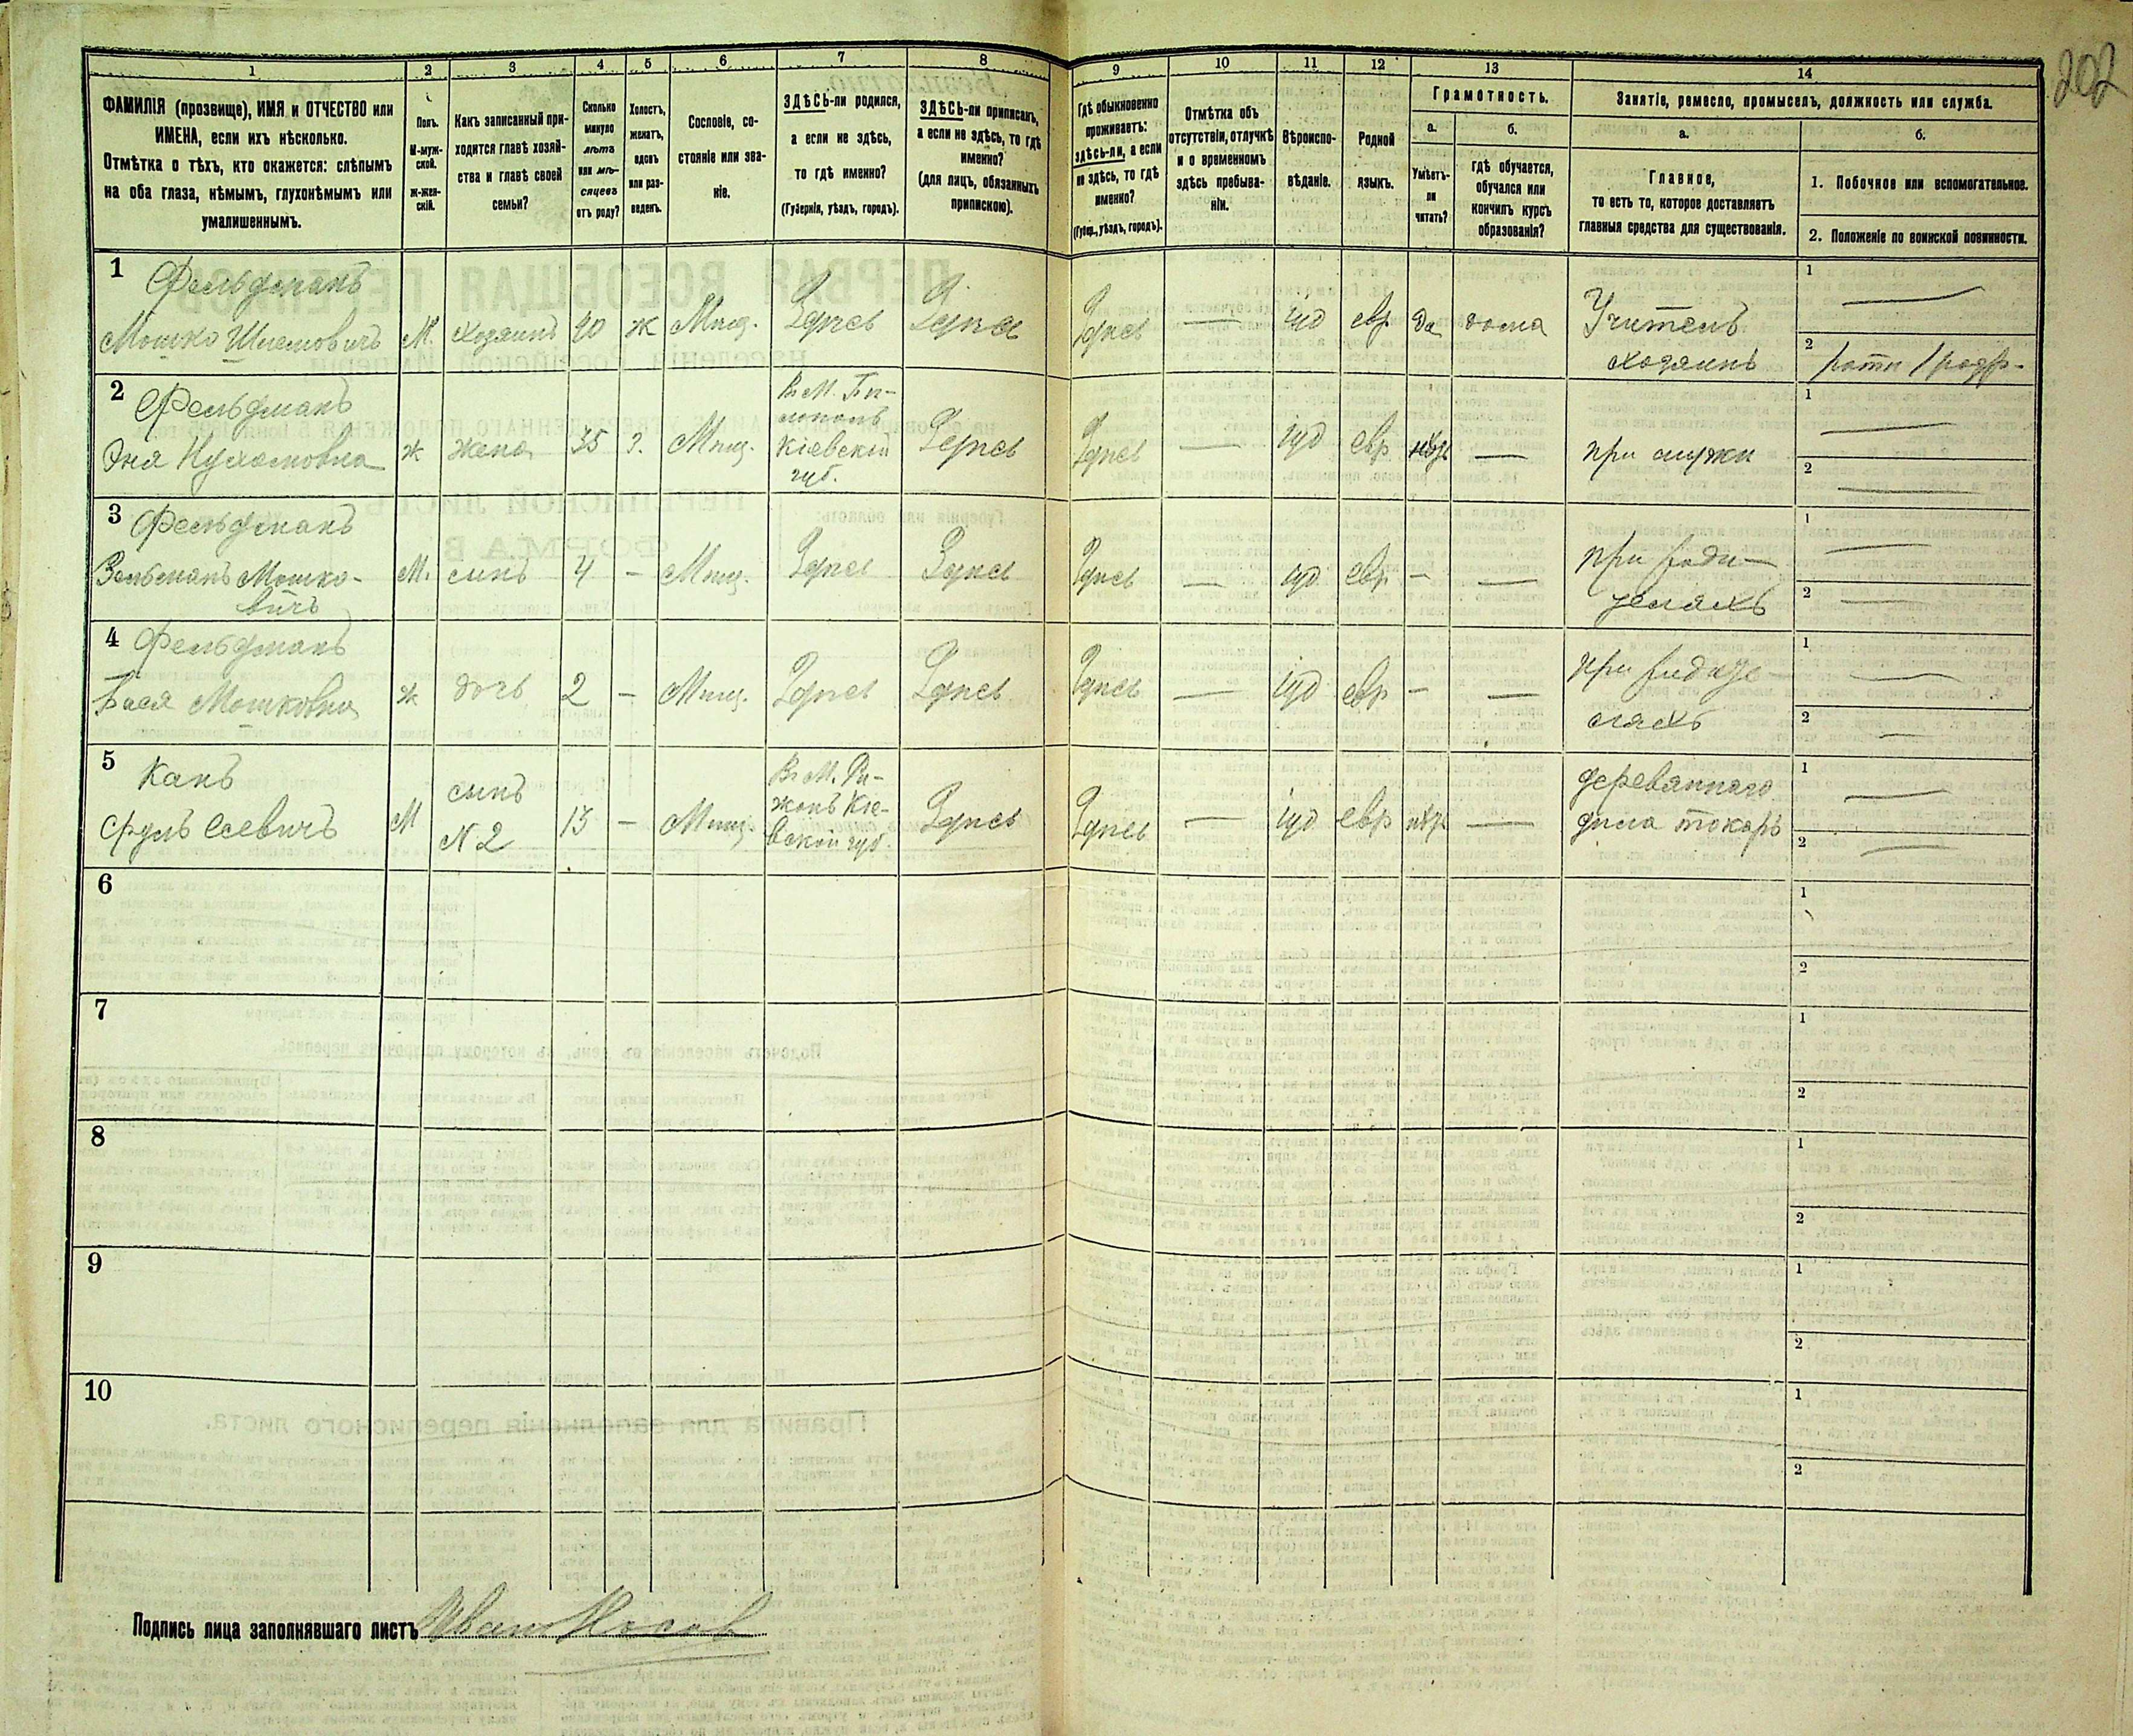 202
1 2 3 4 5 6 7 8 9 10 11 12 13 14
ФАМИЛІЯ (прозвище), ИМЯ и ОТЧЕСТВО или
ИМЕНА, если ихъ нѣсколько.
Отмѣтка о тѣхъ, кто окажется: слѣпымъ
на оба глаза, нѣмымъ, глухонѣмымъ или
умалишеннымъ.
Полъ.
М-муж-
ской.
Ж-жен-
скій.
Какъ записанный при-
ходится главѣ хозяй-
ства и главѣ своей
семьи?
Сколько
минуло
лѣтъ
или мѣ-
сяцевъ
отъ роду?
Холостъ,
женатъ,
вдовъ
или раз-
веденъ.
Сословіе, со-
стояніе или зва-
ніе.
ЗДѢСЬ-ли родился,
а если не здѣсь,
то гдѣ именно?
(Губернія, уѣздъ, городъ).
ЗДѢСЬ-ли приписанъ,
а если не здѣсь, то гдѣ
именно?
(для лицъ, обязанныхъ
припискою).
Гдѣ обыкновенно
проживаетъ:
здѣсь-ли, а если
не здѣсь, то гдѣ
именно?
(Губер., уѣздъ, городъ).
Отмѣтка объ
отсутствіи, отлучкѣ
и о временномъ
здѣсь пребыва-
ніи.
Вѣроиспо-
вѣданіе.
Родной
языкъ.
Грамотность.
а.
Умѣетъ-
ли
читать?
б.
гдѣ обучается,
обучался или
кончилъ курсъ
образованія?
Занятіе, ремесло, промыселъ, должность или служба.
а.
Главное,
то есть то, которое доставляетъ
главныя средства для существованія.
б.
1. Побочное или вспомогательное.
2. Положеніе по воинской повинности.
1 Фельдманъ
Мошко Шлемовичъ М. хозяинъ 40 ж Мѣщ. Здѣсь Здѣсь Здѣсь — іуд евр да дома Учитель
хозяинъ
1 —
2
2 Фельдманъ
Нухомовна ж жена 35 З. Мѣщ.
Кіевской
губ.
Здѣсь Здѣсь — іуд евр — при мужи
1 —
2 —
3 Фельдманъ
Зельманъ Мошко-
вичъ
М. сынъ 4 – Мѣщ. Здѣсь Здѣсь Здѣсь — іуд евр – — при роди-
теляхъ
1 —
2 —
4 Фельдманъ
Бася Мошковна ж дочь 2 – Мѣщ. Здѣсь Здѣсь Здѣсь — іуд евр – — при родите-
ляхъ
1 —
2 —
5 Канъ
Сруль М сынъ
N 2
13 – Мѣщ.
Здѣсь Здѣсь — іуд евр — деревяннаго
дѣла токарь
1 —
2 —
6
1
2
7
1
2
8
1
2
9
1
2
10
1
2
Подпись лица заполнявшаго листъ Иван Носов